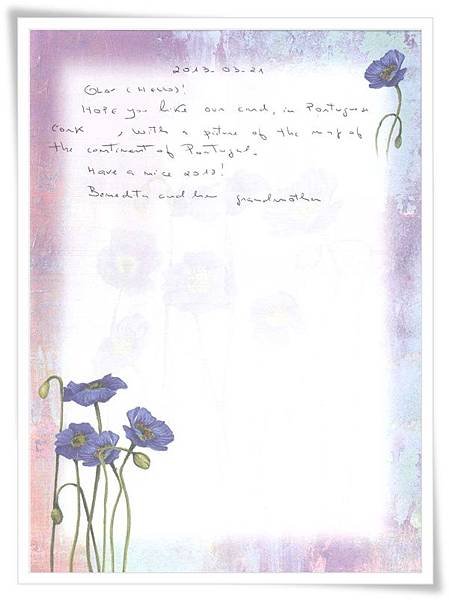 2013-03-21
Olá (Hello)!
Hope you like our card, in Portuguese
cork , with a picture of the map of
the continent of Portugal.
Have a nice 2013!
Benedita and her grandmother